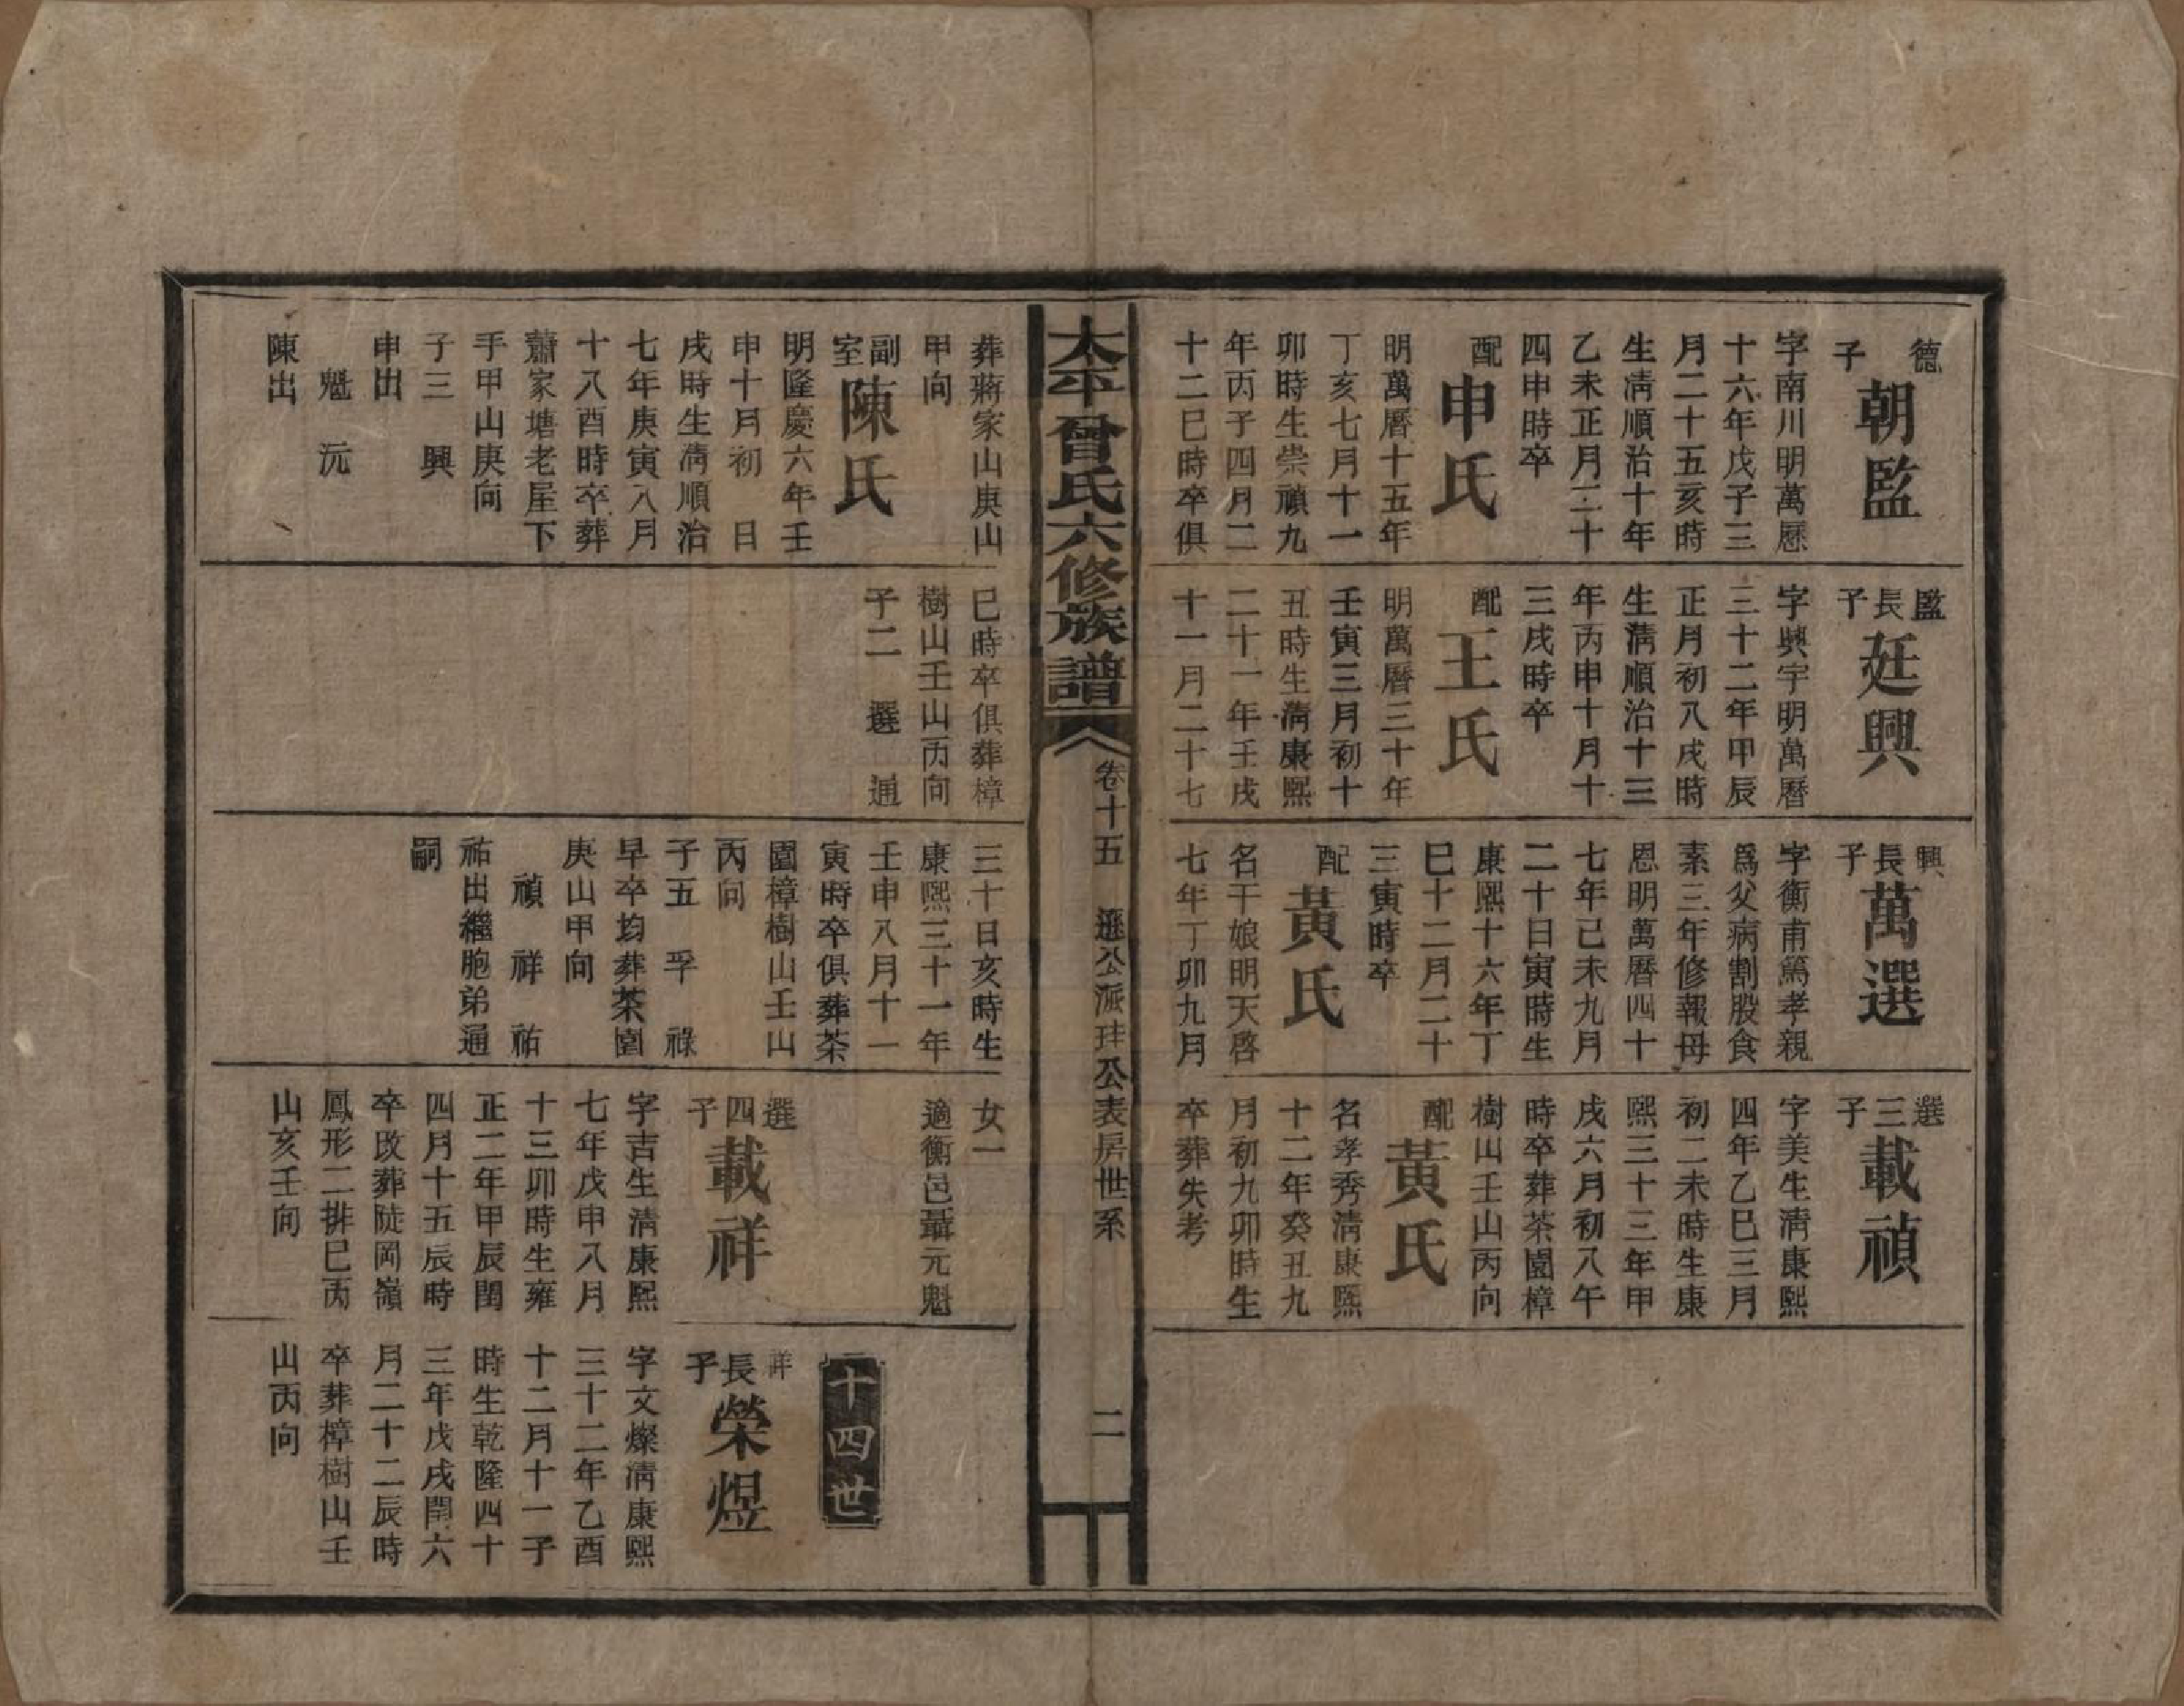 德
子
朝監
字南川明萬厯
十六年戊子三
月二十五亥時
生淸順治十年
乙未正月三十
四申時卒
配
申氏
明萬曆十五年
丁亥七月十一
卯時生崇禎九
年丙子四月二
十二巳時卒俱
監長子
廷興
字興宇明萬曆
三十二年甲辰
正月初八戌時
生淸順治十三
年丙申十月十
三戌時卒
配
王氏
明萬曆三十年
壬寅三月初十
丑時生淸康熙
二十一年壬戌
十一月二十七
興長子
萬選
字衡甫篤孝親
爲父病割股食
素三年修報母
恩明萬曆四十
七年己未九月
二十日寅時生
康熙十六年丁
巳十二月二十
三寅時卒
配
黃氏
名干娘明天啓
七年丁卯九月
選三子
載禎
字美生淸康熙
四年乙巳三月
初二未時生康
熙三十三年甲
戌六月初八午
時卒葬茶園樟
樹山壬山丙向
配
黃氏
名孝秀淸康熙
十二年癸丑九
月初九卯時生
卒葬失考
太平曾氏六修族譜
卷十五
選公派玤公表房世系
二
葬蔣家山庚山
甲向
副室
陳氏
明隆慶六年壬
申十月初 日
戌時生淸順治
七年庚寅八月
十八酉時卒葬
蕭家塘老屋下
手甲山庚向
子三 興
申出
魁 沅
陳出
巳時卒俱葬樟
樹山壬山丙向
子二 選 通
三十日亥時生
康熙三十一年
壬申八月十一
寅時卒俱葬茶
園樟樹山壬山
丙向
子五 孚 祿
早卒均葬茶園
庚山甲向
禎 祥 祐
祐出繼胞弟通
嗣
女一
適衡邑聶元魁
選四子
載祥
字吉生淸康熙
七年戊申八月
十三卯時生雍
正二年甲辰閏
四月十五辰時
卒改葬陡岡嶺
鳳形二排巳丙
山亥壬向
十四世
祥長子
榮煜
字文燦淸康熙
三十二年乙酉
十二月十一子
時生乾隆四十
三年戊戌閏六
月二十二辰時
卒葬樟樹山壬
山丙向